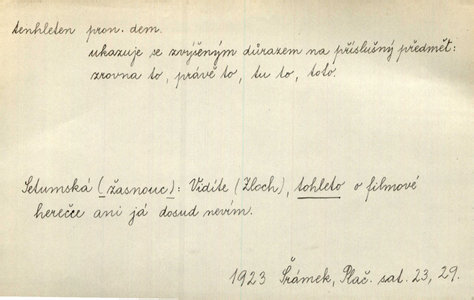 tenhleten pron. dem.
ukazuje se zvýšeným důrazem na příslušný předmět:
zrovna to, právě to, tu to, toto.
Setumská (žasnouc): Vidíte (Zloch), tohleto o filmové
herečce ani já dosud nevím.
1923 Šrámek, Plač. sat. 23, 29.